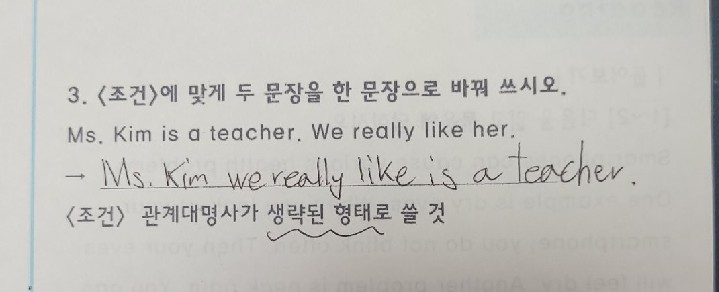 3. <조건>에 맞게 두 문장을 한 문장으로 바꿔 쓰시오.
Ms. Kim is a teacher. We really like her.
→ Ms. Kim we really like is a teacher.
<조건> 관계대명사가 생략된 형태로 쓸 것